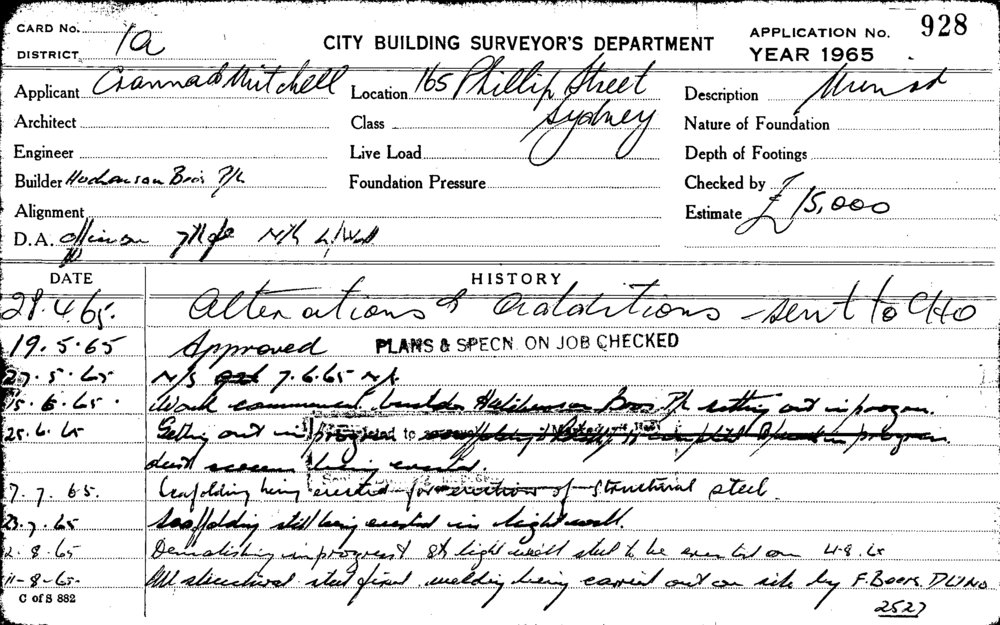 CARD No.
DISTRICT 1a
CITY BUILDING SURVEYOR'S DEPARTMENT
APPLICATION No. 928
YEAR 1965
Applicant Mitchell
Location 165 Phillip Street
Sydney
Description
Architect
Class
Nature of Foundation
Engineer
Live Load
Depth of Footings
Builder Bros P/L
Foundation Pressure
Checked by
Alignment
Estimate £ 15,000
D.A.
DATE
HISTORY
28.4.65. Alterations & additions - sent to CHO
19.5.65 Approved PLANS & SPECN. ON JOB CHECKED
5.65 N/S 7.6.65 N/S
15.6.65. Work commenced builder Hutchinson Bros P/L setting out in progress.
25.6.65 Setting out in progress
dust screens being erected.
7.7.65. Scafolding being erected for erection of structural steel.
23.7.65 Scaffolding still being erected in light well.
2.8.65 Demolishing in progress & light well steel to be erected on 4.8.65
11-8-65- All structural steel fixed welding being carried out on site by F. Beers. DLI No
2527
C of S 882